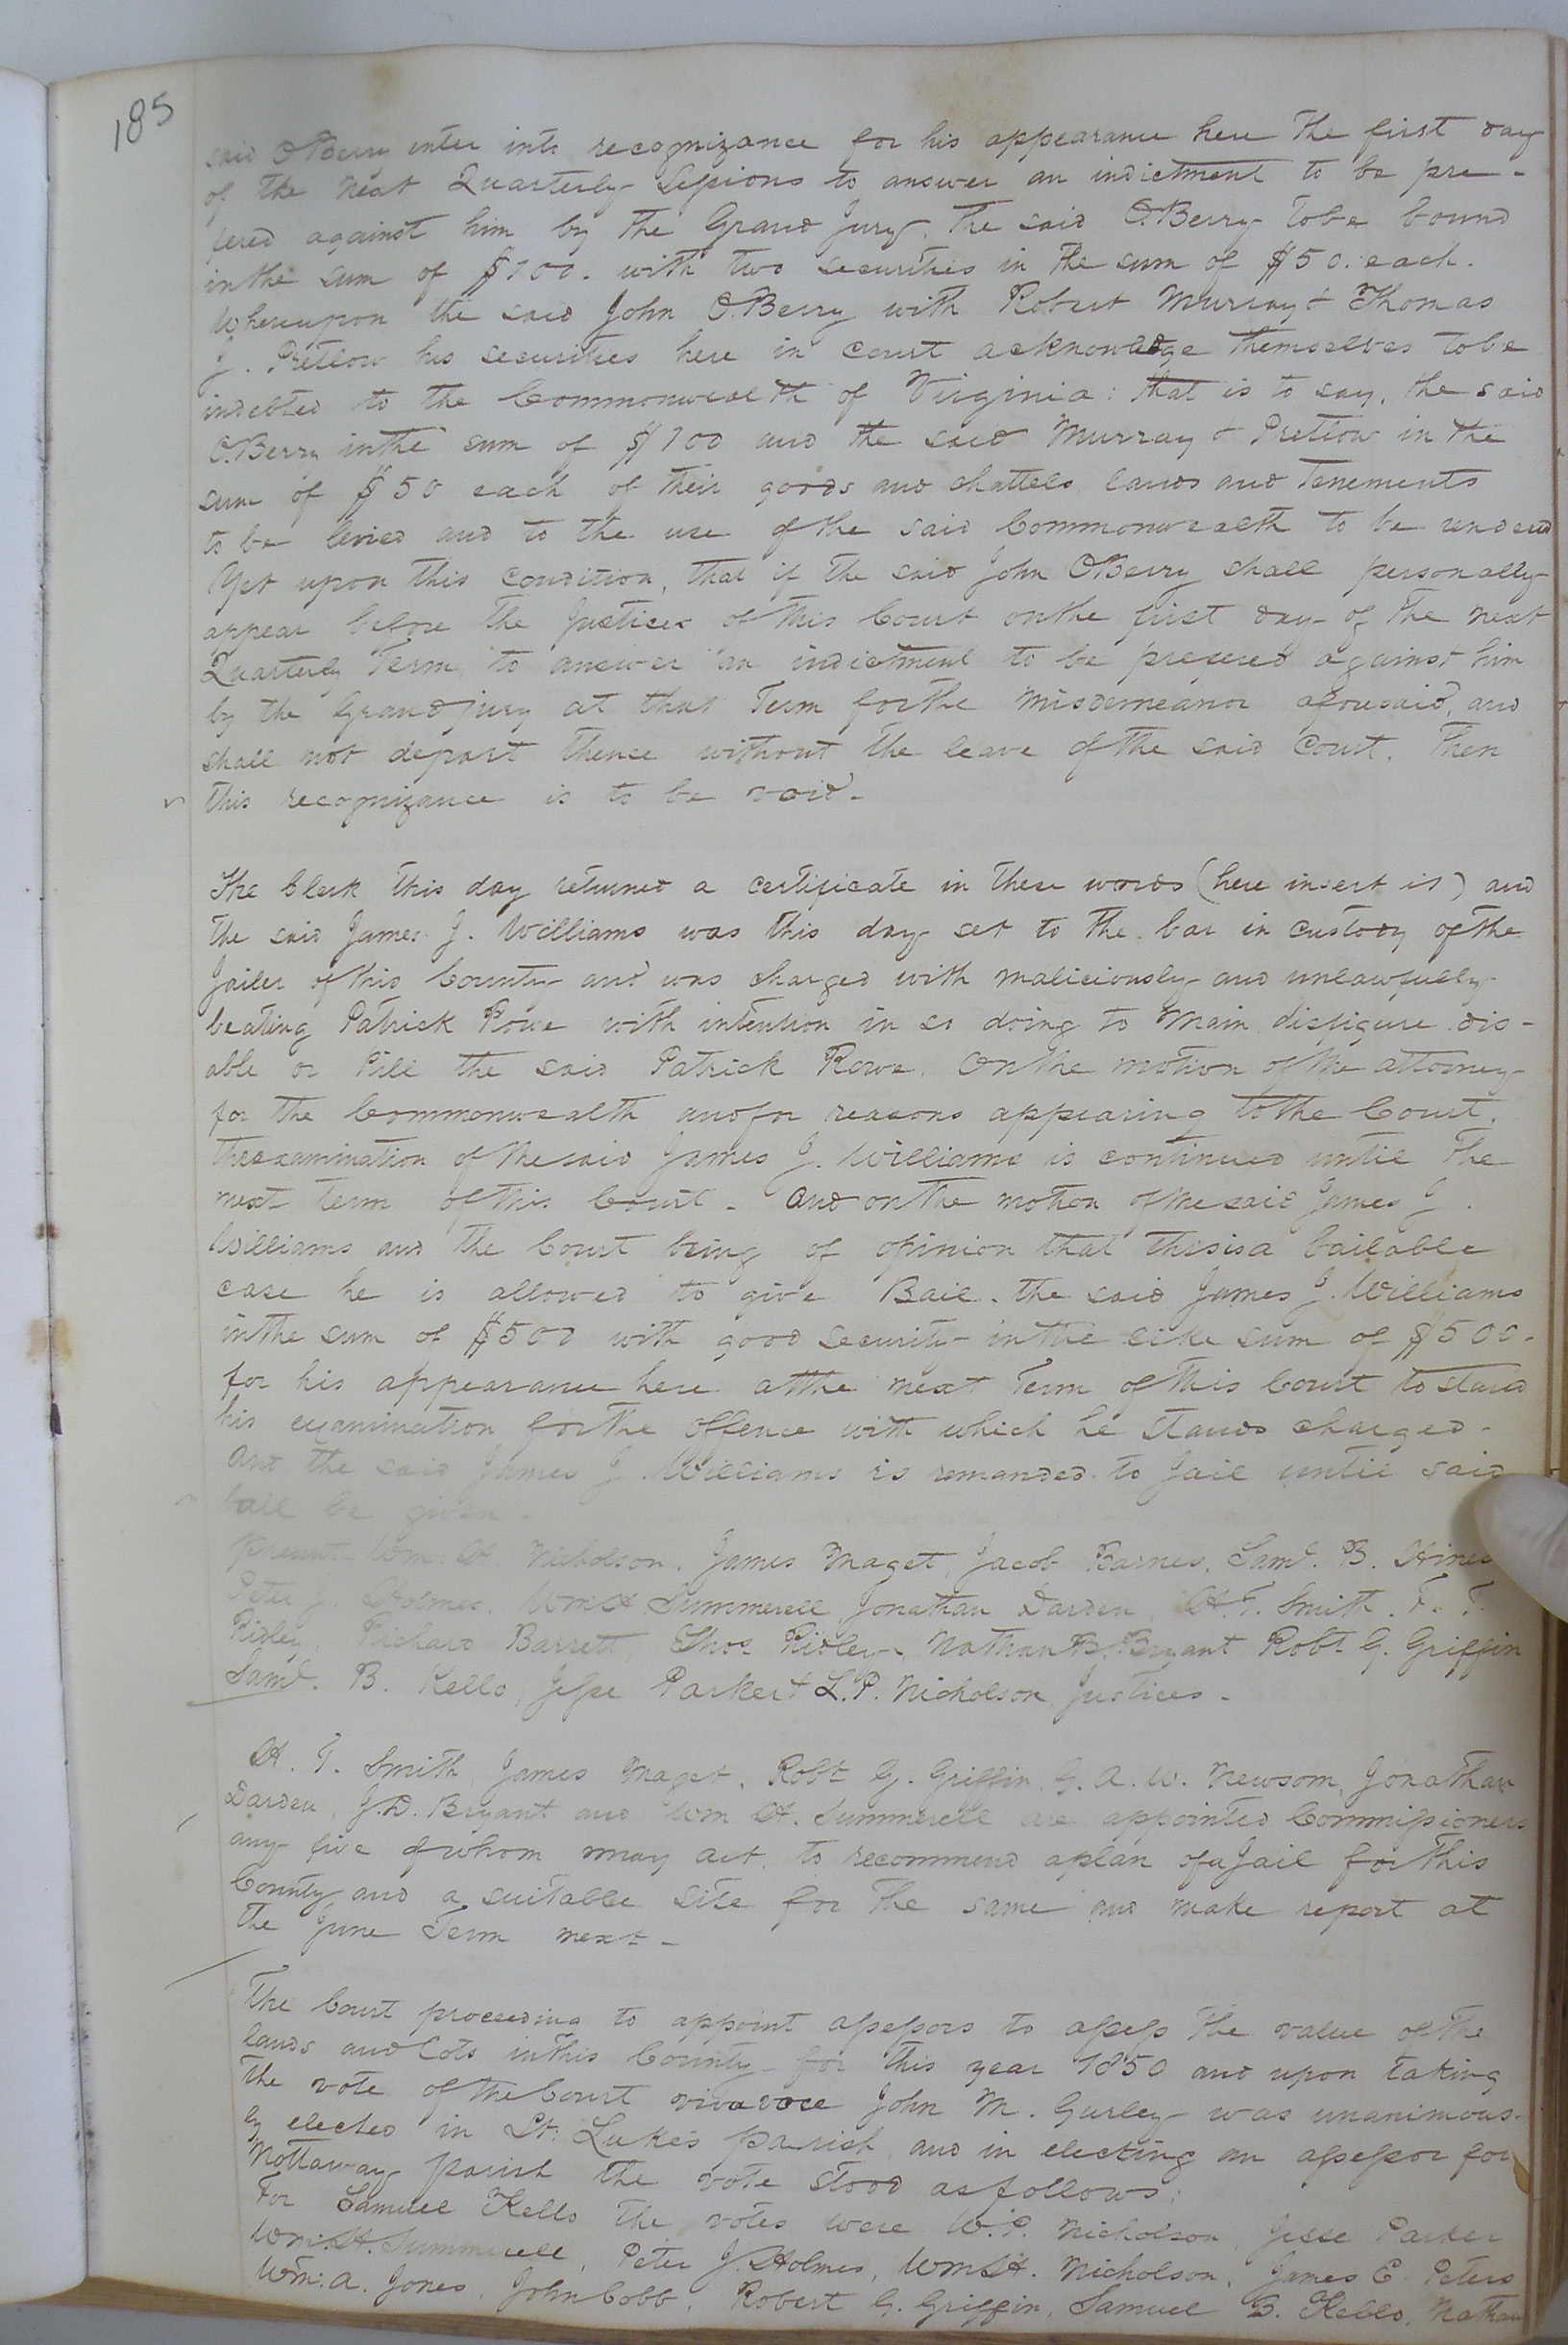 185
said O.Berry enter into recognizance for his appearance here the first day
of the next Quarterly Sessions to answer an indictment to be pre-
fered against him by the Grand Jury. The said O.Berry to be bound
in the sum of $100. with two securities in the sum of $50. each.
Whereupon the said John O.Berry with Robert Murray & Thomas
J. Pretlow his securities here in court acknowledge themselves to be
indebted to the Commonwealth of Virginia: that is to say, the said
O.Berry in the sum of $100 and the said Murray & Pretlow in the
sum of $50 each of their goods and chattels, lands and Tenements
to be levied and to the use of the said Commonwealth to be rendered
Yet upon this condition, that if the said John O.Berry shall personally
appear before the Justices of this Court on the first day of the next
Quarterly Term to answer an indictment to be prefered against him
by the Grand jury at that Term for the misdemeanor aforesaid, and
shall not depart thence without the leave of the said Court, Then
this recognizance is to be void.
The Clerk this day returned a certificate in these words (here insert it) and
the said James J. Williams was this day set to the bar in custody of the
Jailer of this County and was charged with maliciously and unlawfully
beating Patrick Rowe with intention in so doing to Maim, disfigure, dis-
able or kill the said Patrick Rowe. On the motion of the attorney
for the Commonwealth and for reasons appearing to the Court,
the examination of the said James J. Williams is continued until the
next term of this Court. And on the motion of the said James J.
Williams and the Court being of opinion that this is a bailable
case he is allowed to give Bail. the said James J. Williams
in the sum of $500 with good security in the like sum of $500.
for his appearance here at the next Term of this Court to stand
his examination for the offence with which he stands charged.
And the said James J. Williams is remanded to Jail until said
bail be given.
Present Wm. H. Nicholson, James Maget, Jacob Barnes, Saml. B. Hines
Peter J. Holmes, Wm H. Summerell, Jonathan Darden, H.T. Smith. F. T.
Ridley, Richard Barrett, Thos. Ridley, Nathan B. Bryant Robt. G. Griffin
Saml. B. Kello, Jesse Parker & L.P. Nicholson, Justices.
H. T. Smith, James Maget, Robt. G. Griffin, G. A. W. Newsom, Jonathan
Darden, J.D. Bryant and Wm H. Summerell are appointed Commissioners
any five of whom may act, to recommend a plan of a Jail for this
County and a suitable site for the same and make report at
the June Term next.
The Court proceeding to appoint assessors to assess the value of the
lands and lots in this County for this year 1850 and upon taking
the vote of the Court viva voce John M. Gurley was unanimous-
ly elected in St. Luke's parish, and in electing an assessor for
Nottaway parish the vote stood as follows;
For Samuel Kello the votes were W.P. Nicholson, Jesse Parker
Wm. H. Summerell, Peter J. Holmes, Wm H. Nicholson, James E. Peters
Wm. A. Jones, John Cobb, Robert G. Griffin, Samuel B. Kello, Nathan